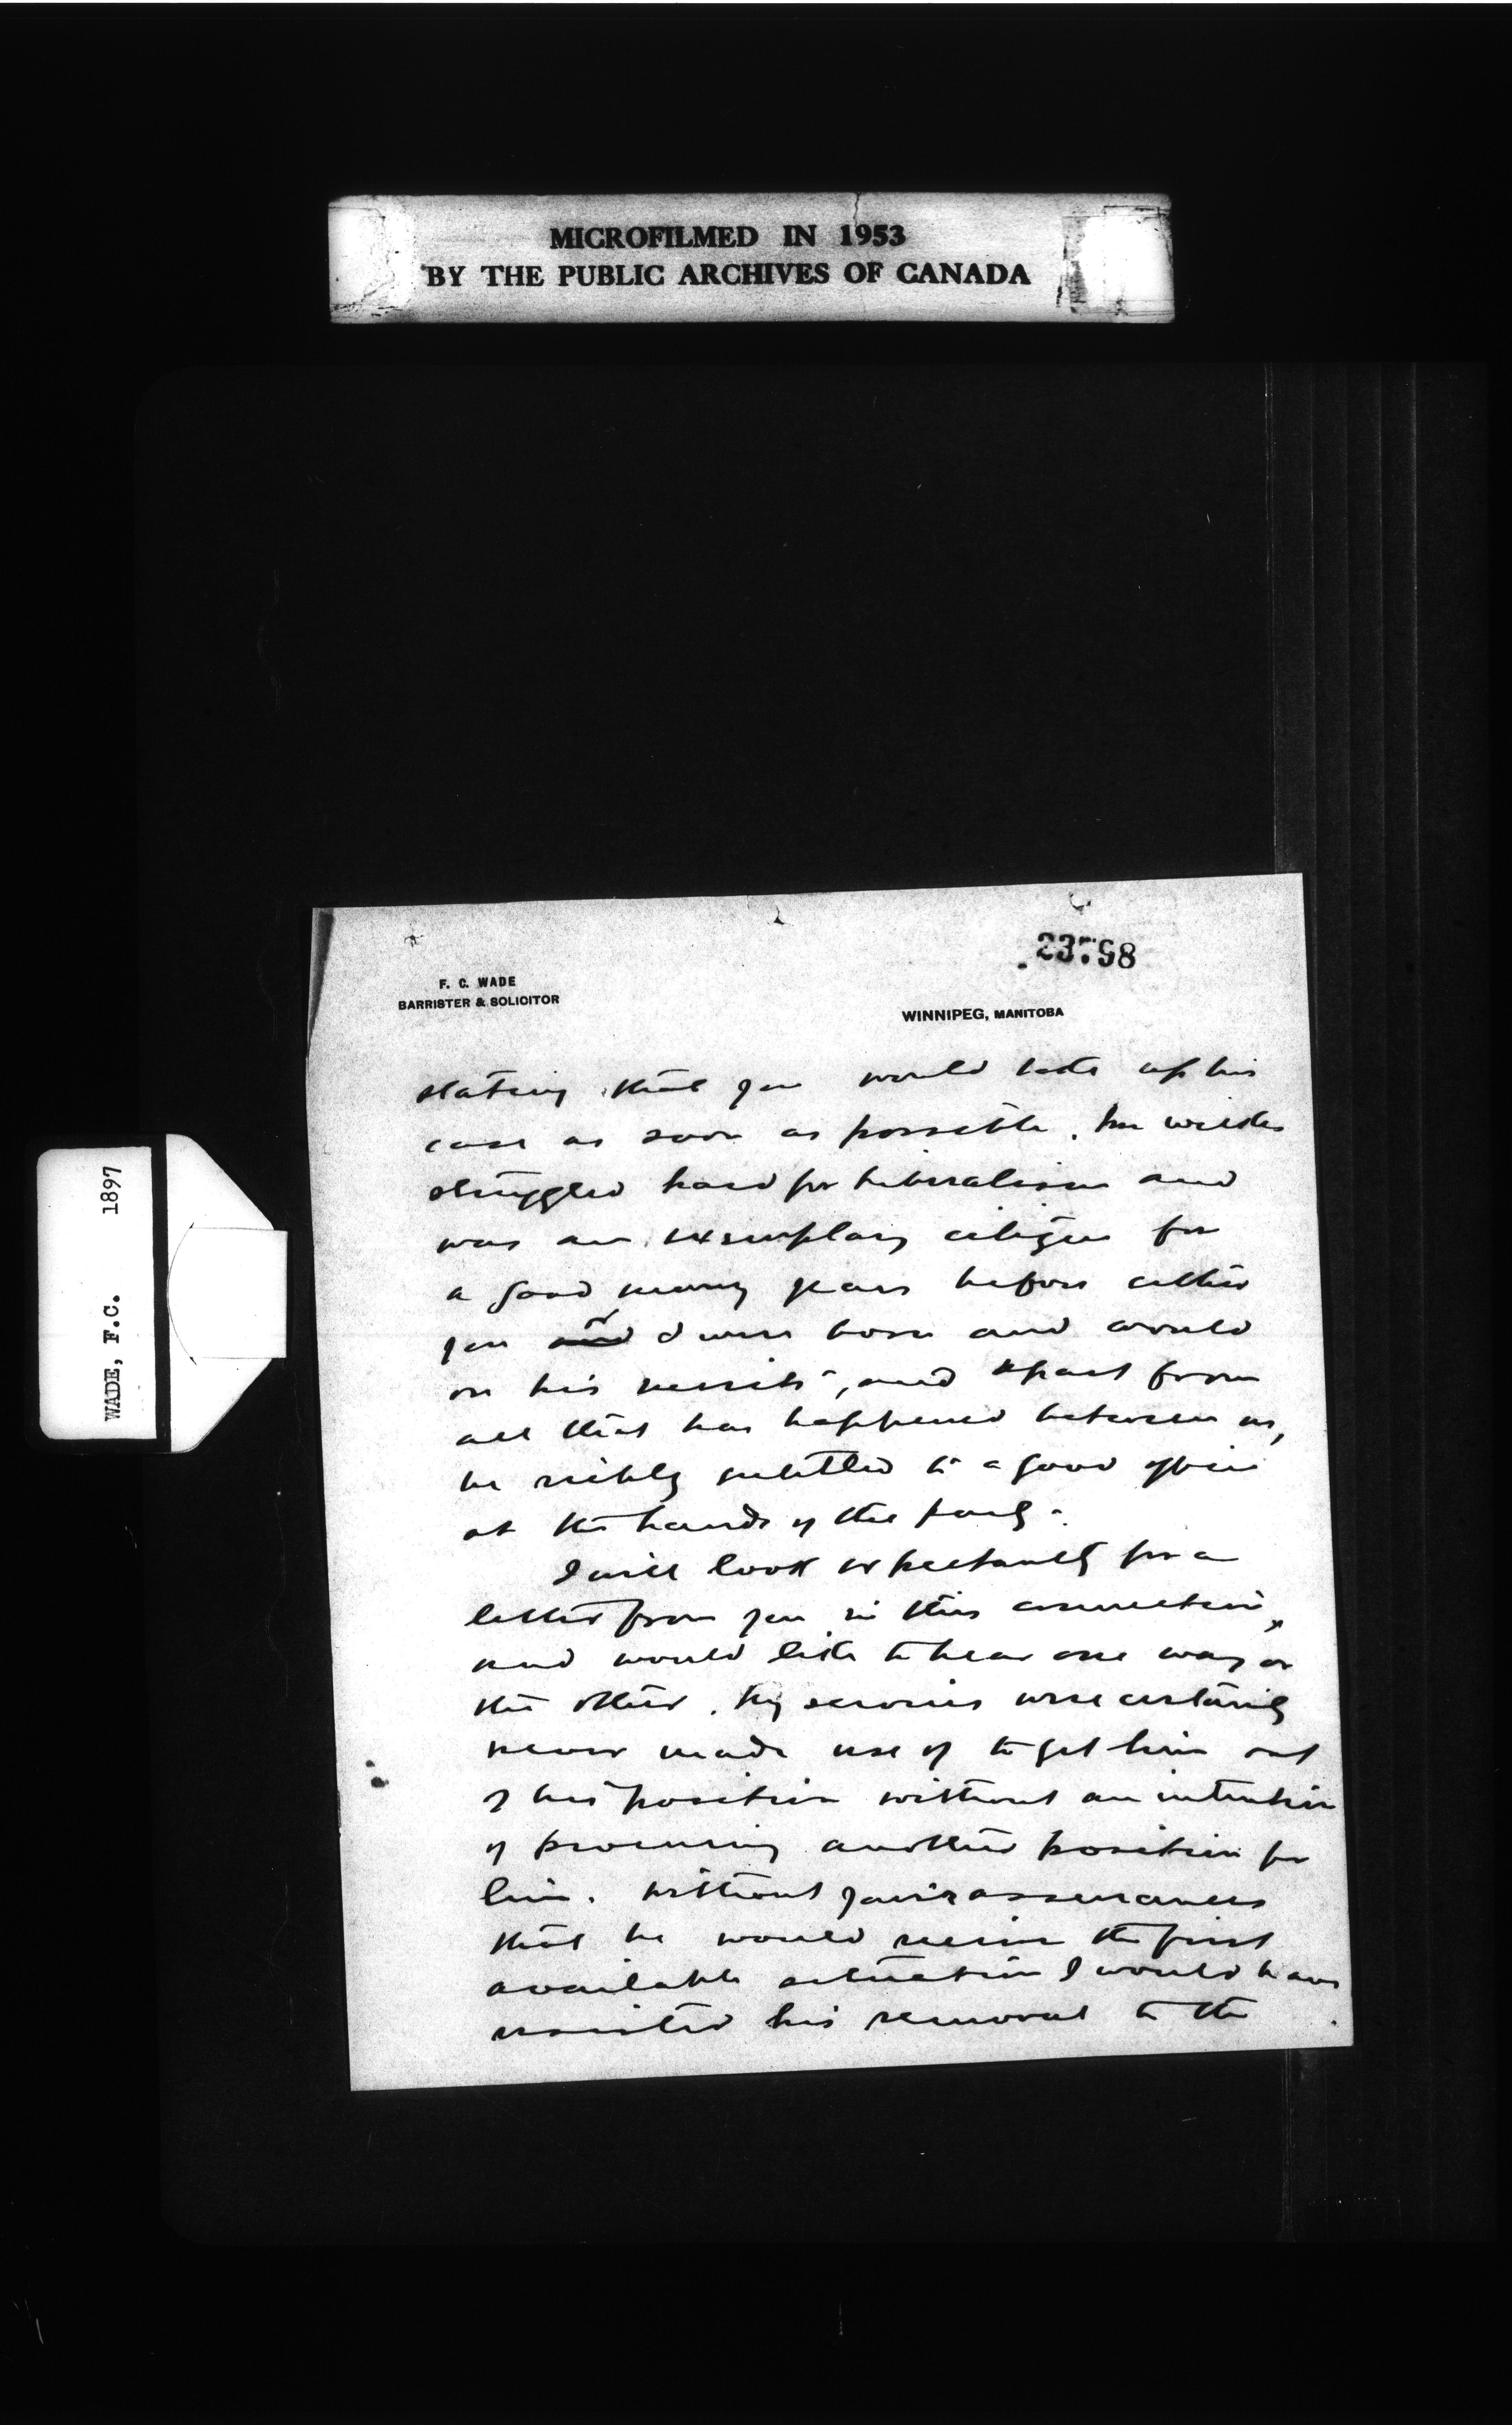 MICROFILMED IN 1953
BY THE PUBLIC ARCHIVES OF CANADA
WADE, F.C. 1897
F. C. WADE
BARRISTER & SOLICITOR
WINNIPEG, MANITOBA
stating that you would take up his
case as soon as possible. Mr
struggled hard for Liberalism and
was an exemplary citizen for
a good many years before either
you and or I were born and would
on his merits, and apart from
all that has happened between us,
be richly entitled to a good office
at the hands of the party.
I will look expectantly for a
letter from you in this connection,
and would like to hear one way or
the other. My services were certainly
never made use of to get him out
of his position without an intention
of procuring another position for
him. Without your assurances
that he would receive the first
available situation I would have
resisted his removal to the